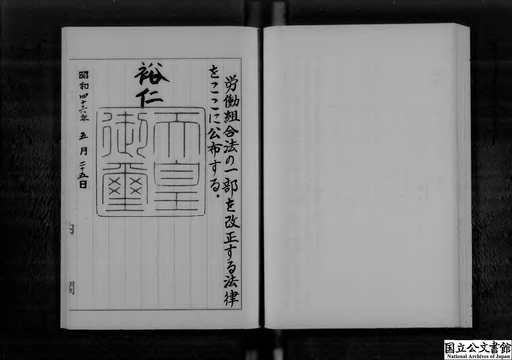 労働組合法の一部を改正する法律
をここに公布する。
裕仁
天皇
御璽
昭和四十六年五月二十五日
国立公文書館
National Archives of Japan